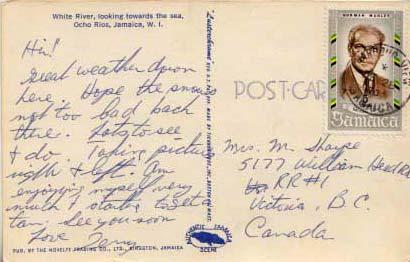 White River, looking towards the sea,
Ocho Rios, Jamaica, W. I.
Hi!
Great weather down
here. Hope the snow's
not too bad back
there. Lots to see
& do. Taking pictures
right & left. Am
enjoying myself very
much & starting to get a
tan. See you soon
Love Terry
PUB. BY THE NOVELTY TRADING CO., LTD., KINGSTON, JAMAICA
"Lusterchrome"
POST CAR
AUTHENTIC JAMAICA
SCENE
NORMAN MANLEY
Jamaica
Mrs. M. Sharpe
5177 William Head Rd
RR#1
Victoria, B.C.
Canada